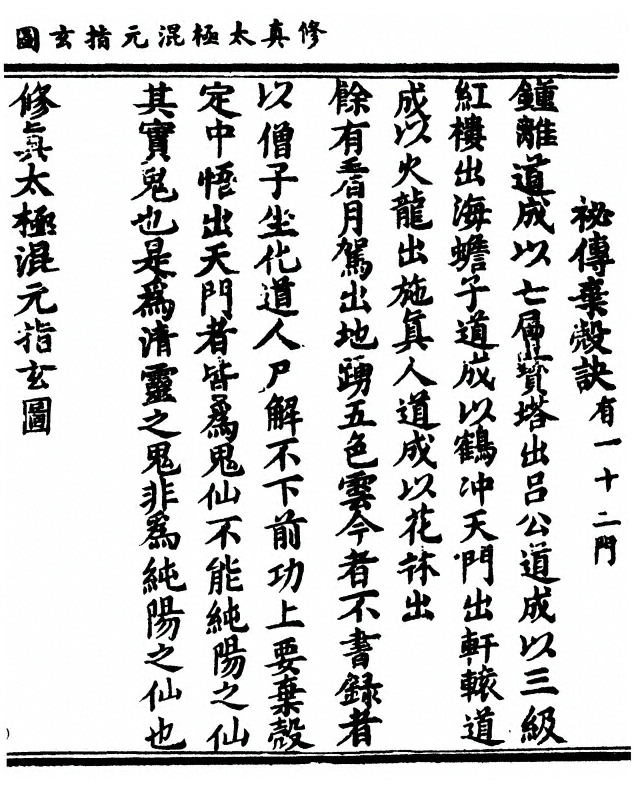 修真太極混元指玄圖
祕傳棄殼訣有一十二門
鍾離道成以七層寶塔出呂公道成以三級
紅樓出海蟾子道成以鶴冲天門出軒轅道
成以火龍出施真人道成以花秝出
餘有着月駕出地踴五色雲今者不書録者
以僧子坐化道人尸解不下前功上要棄殼
定中悟出天門者皆爲鬼仙不能純陽之仙
其實鬼也是爲清靈之鬼非爲純陽之仙也
修眞太極混元指玄圖